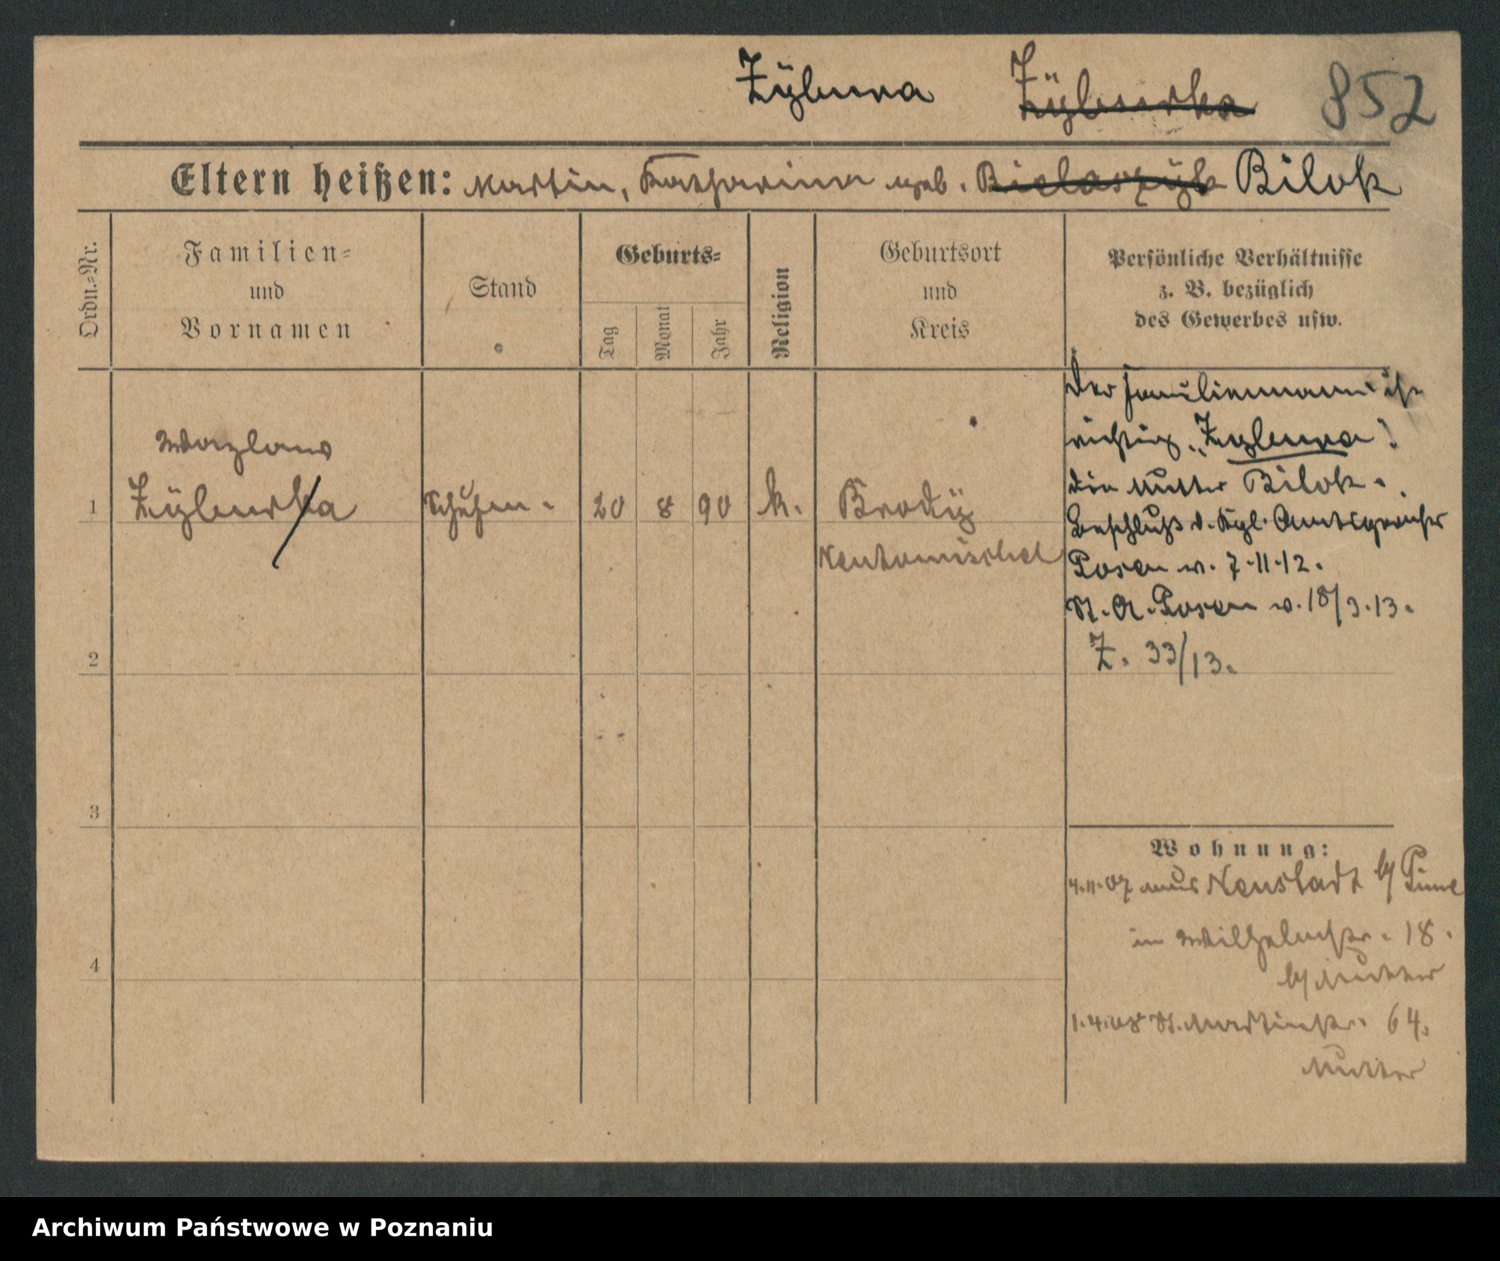 Zÿbura Zÿburka 852
Eltern heißen: Martin, Katharina geb. Bielaszyk Bilok
Ordn.=Nr.
Familien=
und
Vornamen
Stand
Geburts=
Tag
Monat
Jahr
Religion
Geburtsort
und
Kreis
Persönliche Verhältnisse
z. B. bezüglich
des Gewerbes usw.
1
Wazlaw
Zÿburka
20 8 90 k. Brodÿ
Neutomischel
Der Familienname ist
richtig „Zybura“!
Die Mutter Bilok.
Beschluß d. Kgl. Amtsgericht
Posen v. 7.11.12.
St. A. Posen v. 18/3.13.
Z. 33/13.
2
3
4
Wohnung:
4.11.07 aus Neustadt b/ Pinne
in Wilhelmstr. 18.
b/ Mutter
1.4.08 St. Martinstr. 64.
Mutter
Archiwum Państwowe w Poznaniu